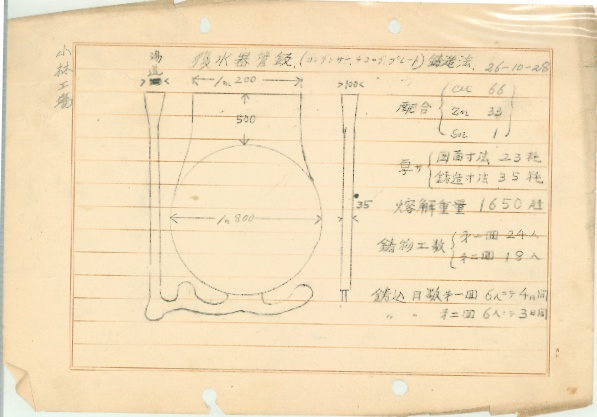 小林工場
復水器管鈑(コンデンサーチューブプレート)鋳造法. 26-10-28
湯道
1m200
100
500
配合 Cu 66
Zn 33
Sn 1
厚サ 図面寸法 23粍
鋳造寸法 35粍
35
熔解重量 1650瓩
1m800
鋳物工数 第一回 24人
第二回 18人
鋳込日数 第一回 6人ニテ 4日間
〃 〃 第二回 6人ニテ 3日間